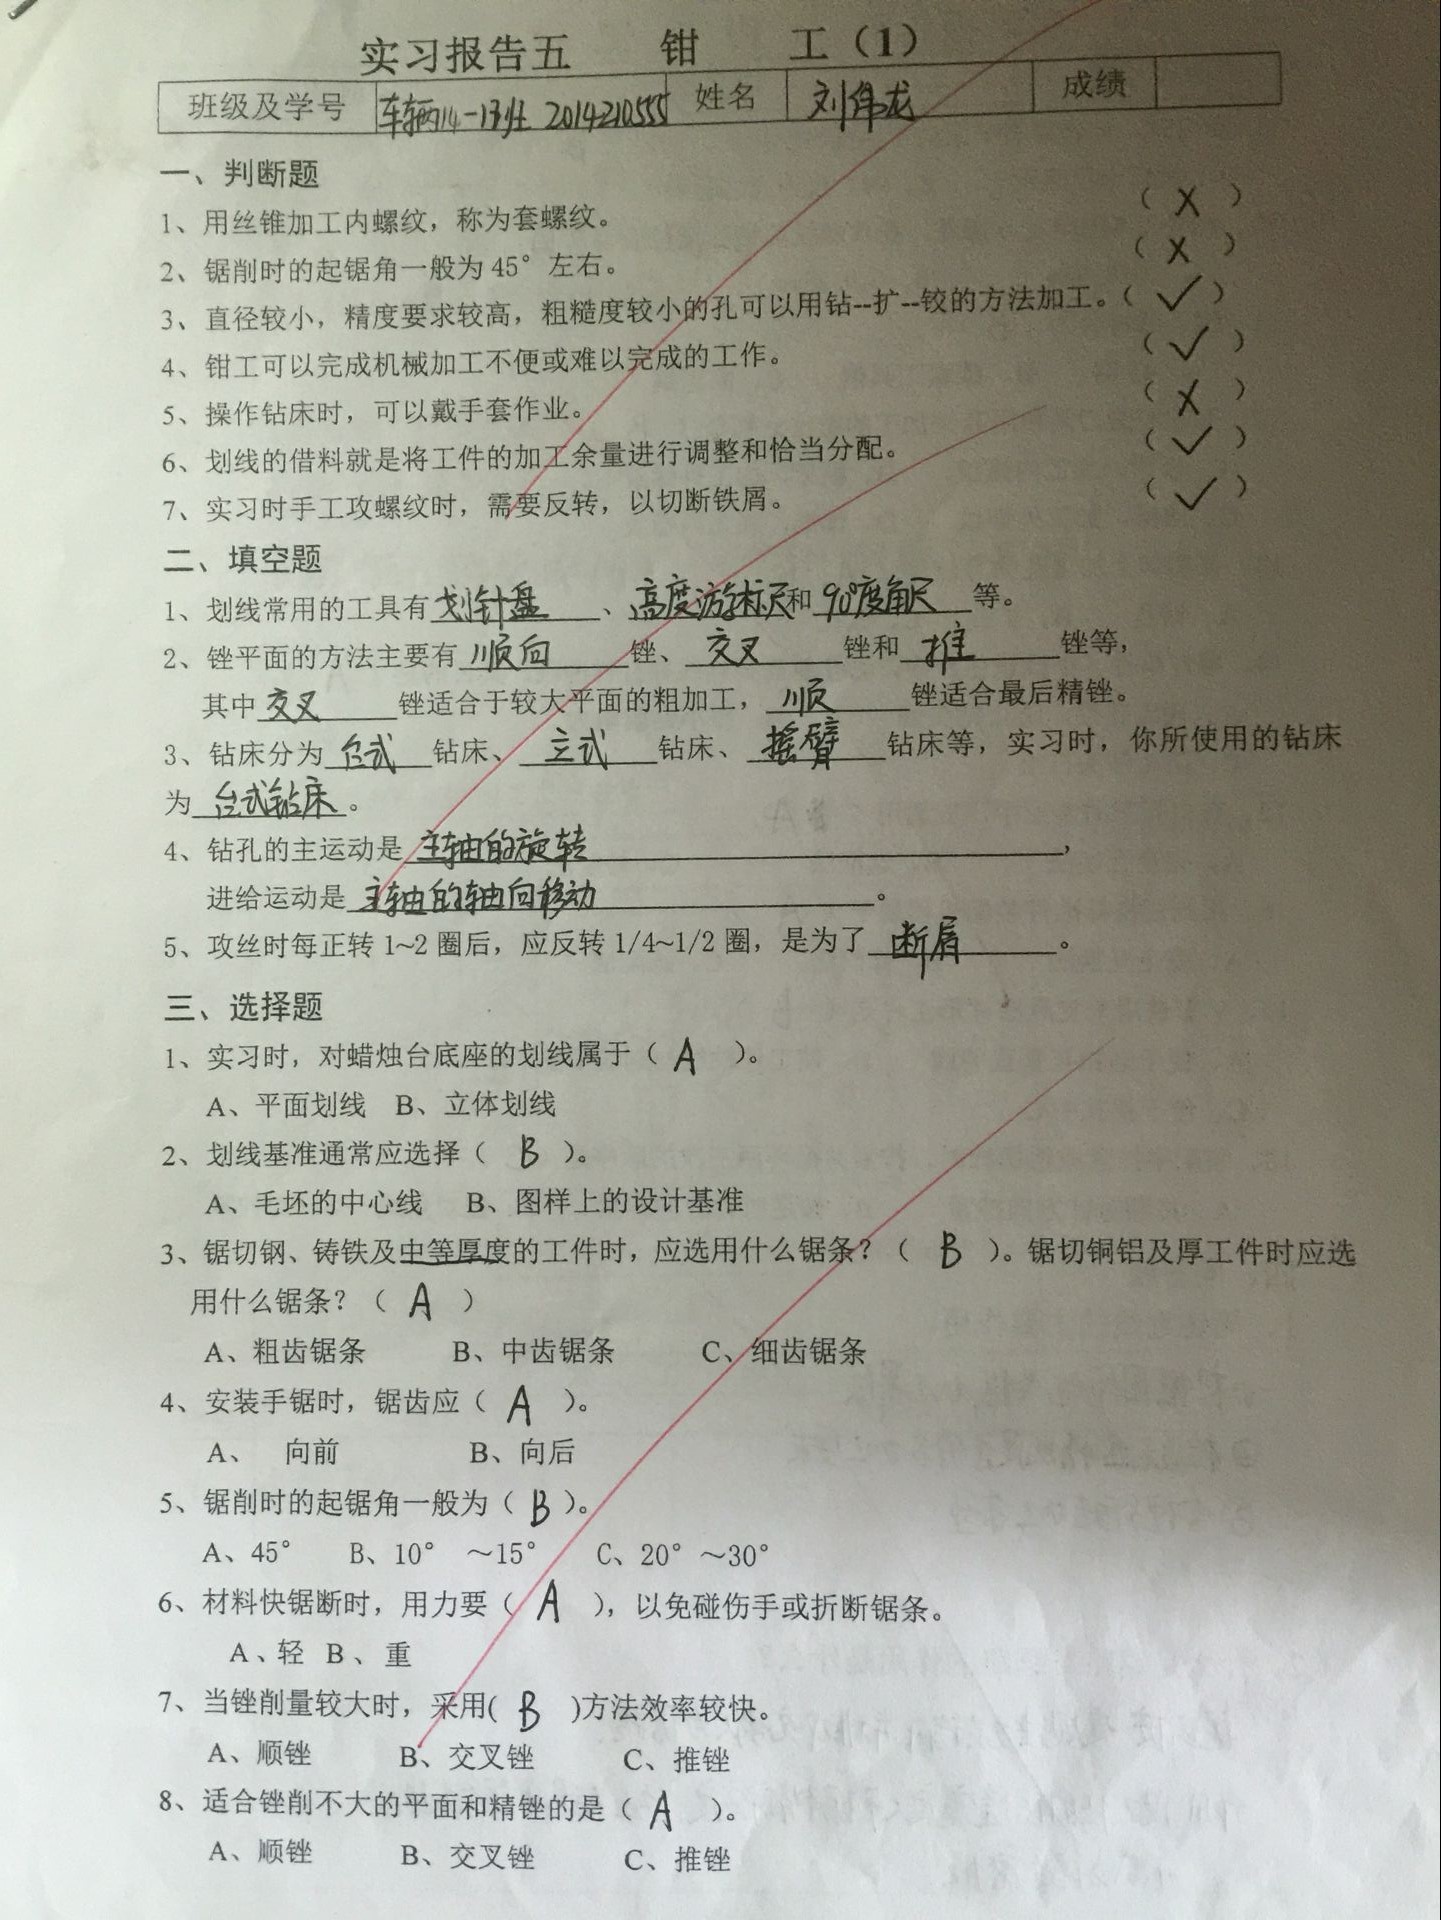 实习报告五 钳 工（1）
班级及学号 车辆14-1班 2014210555 姓名 刘伟龙 成绩
一、判断题
1、用丝锥加工内螺纹，称为套螺纹。 （ X ）
2、锯削时的起锯角一般为 45°左右。 （ X ）
3、直径较小，精度要求较高，粗糙度较小的孔可以用钻--扩--铰的方法加工。（ ✓ ）
4、钳工可以完成机械加工不便或难以完成的工作。 （ ✓ ）
5、操作钻床时，可以戴手套作业。 （ X ）
6、划线的借料就是将工件的加工余量进行调整和恰当分配。 （ ✓ ）
7、实习时手工攻螺纹时，需要反转，以切断铁屑。 （ ✓ ）
二、填空题
1、划线常用的工具有 划针盘 、高度游标尺和 90°度角尺 等。
2、锉平面的方法主要有 顺向 锉、 交叉 锉和 推 锉等，
其中 交叉 锉适合于较大平面的粗加工， 顺 锉适合最后精锉。
3、钻床分为 台式 钻床、 立式 钻床、 摇臂 钻床等，实习时，你所使用的钻床
为 台式钻床 。
4、钻孔的主运动是 主轴的旋转 ，
进给运动是 主轴的轴向移动 。
5、攻丝时每正转 1~2 圈后，应反转 1/4~1/2 圈，是为了 断屑 。
三、选择题
1、实习时，对蜡烛台底座的划线属于（ A ）。
A、平面划线 B、立体划线
2、划线基准通常应选择（ B ）。
A、毛坯的中心线 B、图样上的设计基准
3、锯切钢、铸铁及中等厚度的工件时，应选用什么锯条？（ B ）。锯切铜铝及厚工件时应选
用什么锯条？（ A ）
A、粗齿锯条 B、中齿锯条 C、细齿锯条
4、安装手锯时，锯齿应（ A ）。
A、 向前 B、向后
5、锯削时的起锯角一般为（ B ）。
A、45° B、10° ～15° C、20°～30°
6、材料快锯断时，用力要（ A ），以免碰伤手或折断锯条。
A、轻 B、重
7、当锉削量较大时，采用( B )方法效率较快。
A、顺锉 B、交叉锉 C、推锉
8、适合锉削不大的平面和精锉的是（ A ）。
A、顺锉 B、交叉锉 C、推锉